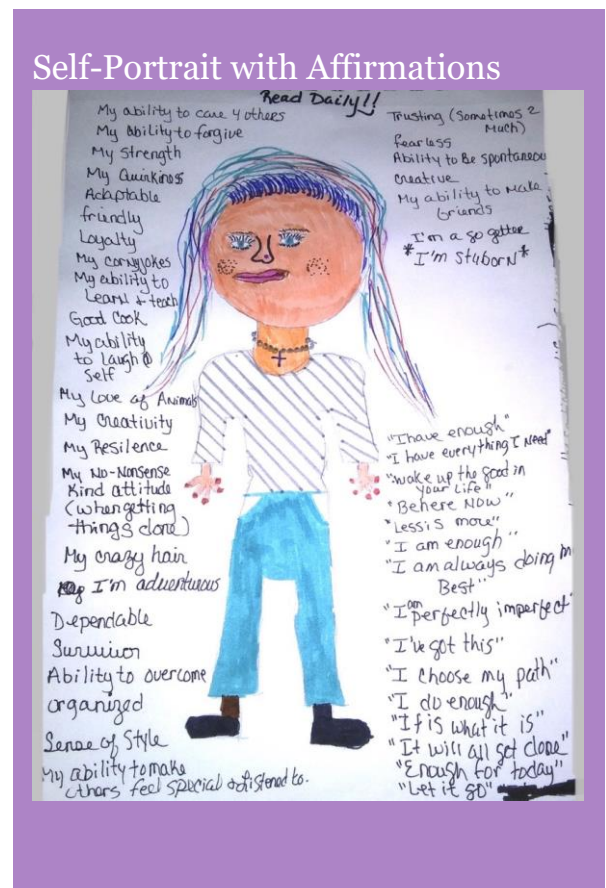 Self-Portrait with Affirmations
Read Daily!!
My ability to care 4 others
My Ability to forgive
My Strength
My Quirkiness
Adaptable
friendly
Loyalty
My corny jokes
My ability to
Learn & teach
Good Cook
My ability
to Laugh @
Self
My Love of Animals
My Creativity
My Resilence
My No-Nonsense
Kind attitude
(when getting
things done)
My crazy hair
I'm adventurous
Dependable
Survivor
Ability to overcome
organized
Sense of Style
My ability to make
others feel special & Listened to.
Trusting (Sometimes 2
Much)
fearless
Ability to Be spontaneous
creative
My ability to Make
friends
I'm a go getter
*I'm stuborn*
"I have enough"
"I have everything I Need"
"wake up the good in
your Life"
"Be here Now"
"Less is more"
"I am enough"
"I am always doing m
Best"
"I am perfectly imperfect"
"I've got this"
"I choose my path"
"I do enough"
"If is what it is"
"It will all get done"
"Enough for today"
"Let it go"